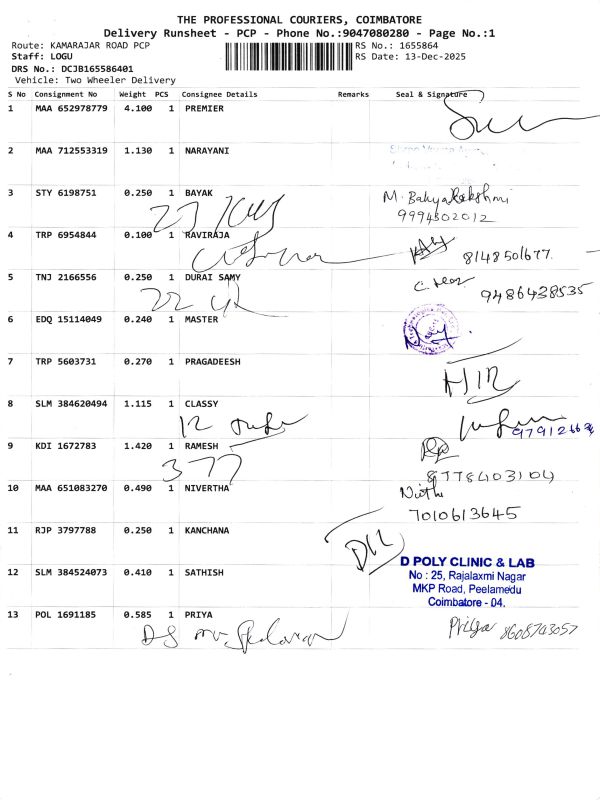 THE PROFESSIONAL COURIERS, COIMBATORE
Delivery Runsheet - PCP - Phone No.:9047080280 - Page No.:1
Route: KAMARAJAR ROAD PCP RS No.: 1655864
Staff: LOGU RS Date: 13-Dec-2025
DRS No.: DCJB165586401
Vehicle: Two Wheeler Delivery
S No Consignment No Weight PCS Consignee Details Remarks Seal & Signature
1 MAA 652978779 4.100 1 PREMIER
2 MAA 712553319 1.130 1 NARAYANI
3 STY 6198751 0.250 1 BAYAK
M. Bakya Lekshmi
9994302012
4 TRP 6954844 0.100 1 RAVIRAJA
8148501677.
5 TNJ 2166556 0.250 1 DURAI SAMY
9486438535
6 EDQ 15114049 0.240 1 MASTER
7 TRP 5603731 0.270 1 PRAGADEESH
8 SLM 384620494 1.115 1 CLASSY
12
9 KDI 1672783 1.420 1 RAMESH
377
8778403104
10 MAA 651083270 0.490 1 NIVERTHA
7010613645
11 RJP 3797788 0.250 1 KANCHANA
D POLY CLINIC & LAB
No : 25, Rajalaxmi Nagar
MKP Road, Peelamedu
Coimbatore - 04.
12 SLM 384524073 0.410 1 SATHISH
13 POL 1691185 0.585 1 PRIYA
Priya 8608743057